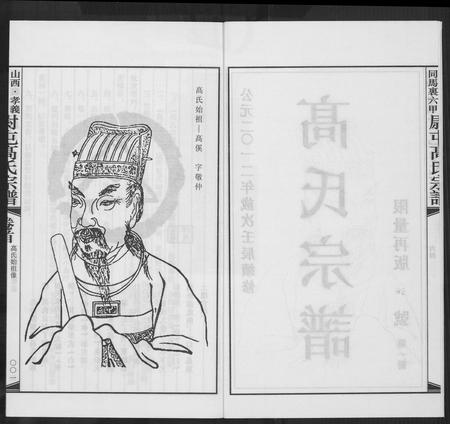 同馬裏六甲
尉屯高氏宗譜
限量再版
號
髙氏宗譜
公元二〇一二年歲次壬辰續修
高氏始祖—高傒 字敬仲
山西·孝義
尉屯高氏宗譜
卷首
高氏始祖像
〇〇一